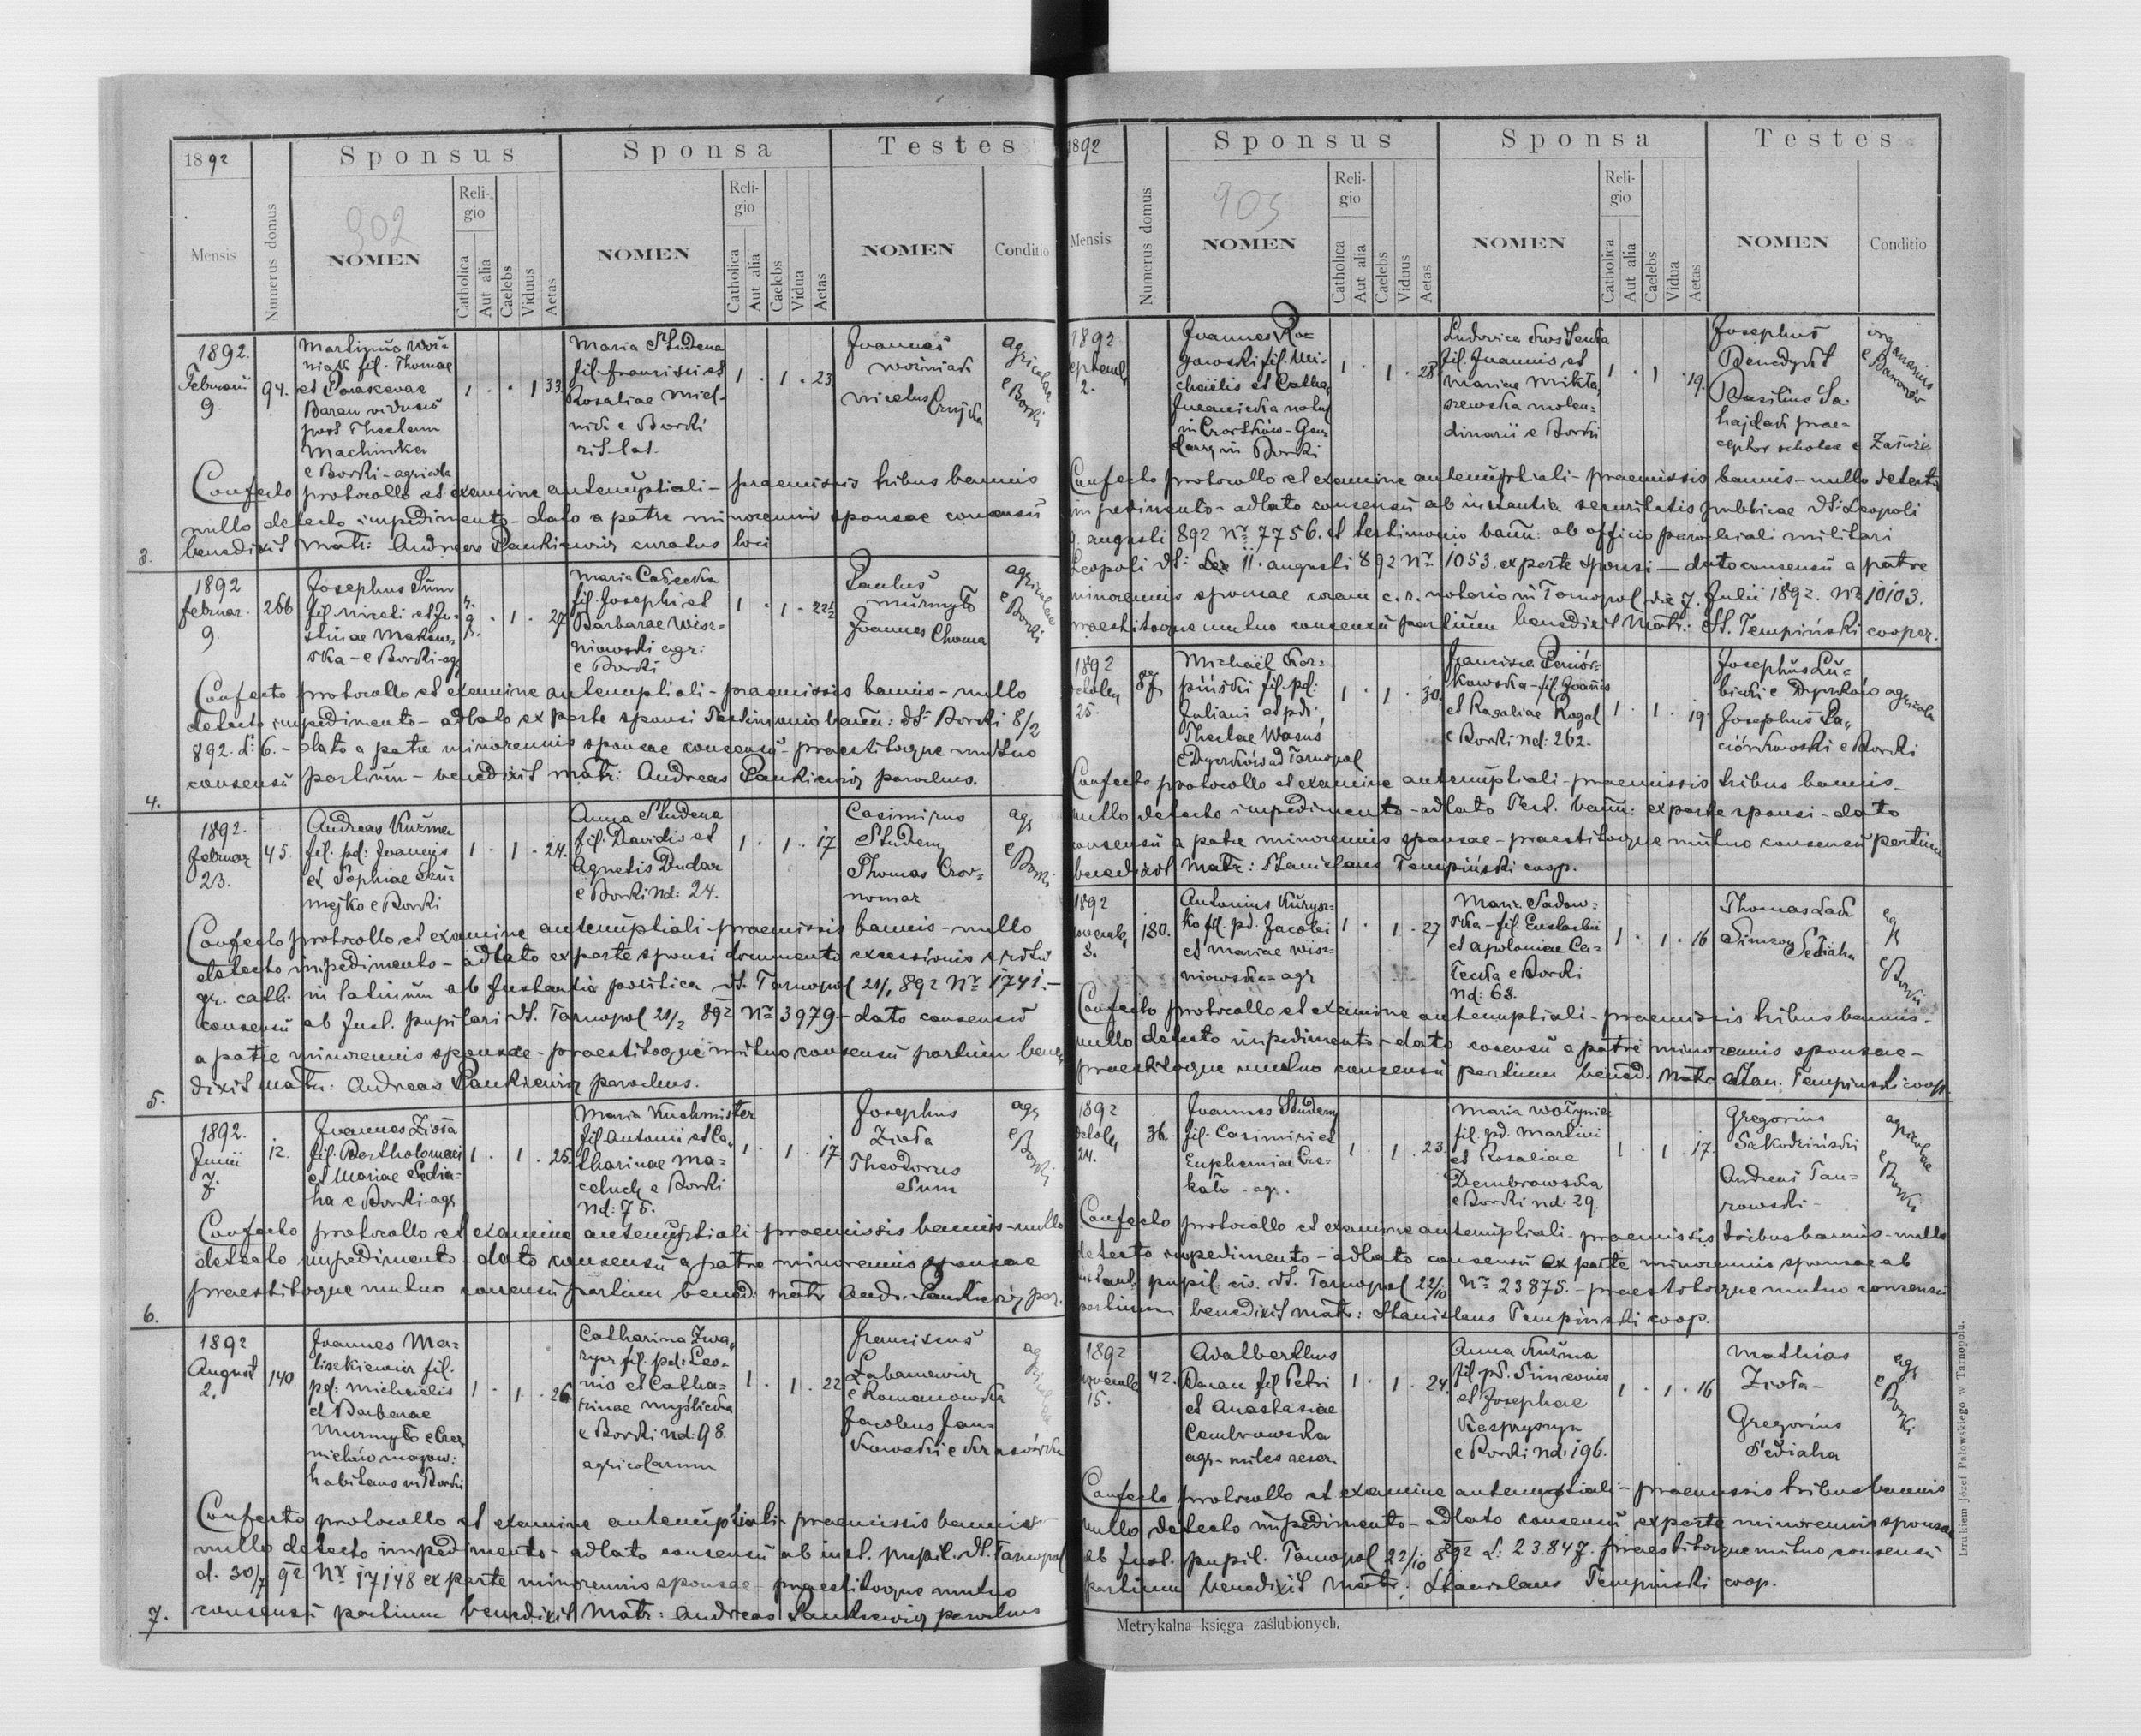 1892
Sponsus
Sponsa
Testes
Mensis
Numerus domus
902
NOMEN
Religio
Catholica
Aut alia
Caelebs
Viduus
Aetas
NOMEN
Religio
Catholica
Aut alia
Caelebs
Vidua
Aetas
NOMEN
Conditio
1892.
Februarii
9.
94.
Martinus Woź-
niak fil. Thomae
et Parascevae
Baran viduus
post Theclam
Machinka
e Borki - agricola
1 . . 1 33
Maria Studena
fil. Francisci et
Rosaliae Miel-
nik e Borki
rit. lat.
1 . 1 . 23
Joannes
Woźniak
Nicetus
agricolae
e Borki
Confecto protocollo et examine antenuptiali - praemissis tribus bannis
nullo detecto impedimento - dato a patre minorennis sponsae consensu
benedixit matr: Andreas Pankiewicz curatus loci
3.
1892
Februar.
9.
266
Josephus Sum
fil. Niceti et Ju-
stinae Maksym
ska - e Borki - agr
1 . 27
Maria
fil. Josephi et
Barbarae Wisz-
niowski agr:
e Borki
1 . 1 . 22½
Paulus
Murmyło
Joannes Choma
agricolae
e Borki
Confecto protocollo et examine antenuptiali - praemissis bannis - nullo
detecto impedimento - adlato ex parte sponsi Testimonio bann: dt. Borki 8/2
892. L: 6. - dato a patre minorennis sponsae consensu - praestitoque mutuo
consensu partium - benedixit matr: Andreas Pankiewicz parochus.
4.
1892.
Februar
23.
45.
Andreas Kuźma
fil. pd: Joannis
et Sophiae Szu-
mejko e Borki
1 . 1 . 24.
Anna Studena
fil. Davidis et
Agnetis Dudar
e Borki Nd: 24.
1 . 1 . 17
Casimirus
Studeny
Thomas Czor-
nomaz
agr
e Borki
Confecto protocollo et examine antenuptiali - praemissis bannis - nullo
detecto impedimento - adlato ex parte sponsi documento excessionis e ritu
gr. cath. in latinum ab Instantia politica dt. Tarnopol 21/1 892 Nr 1741. -
consensu ab Inst. pupilari dt. Tarnopol 21/2 892 Nr 3979 - dato consensu
a patre minorennis sponsae - praestitoque mutuo consensu partium bene-
dixit matr: Andreas Pankiewicz parochus.
5.
1892.
Junii
7.
12.
Joannes Zioła
fil. Bartholomaei
et Mariae Sedia-
ha e Borki - agr
1 . 1 . 25.
Maria Kuchmister
fil. Antonii et Ca-
tharinae Ma-
celuch e Borki
Nd: 75.
1 . 1 . 17
Josephus
Zioła
Theodorus
Sum
agr
e Borki
Confecto protocollo et examine antenuptiali - praemissis bannis - nullo
detecto impedimento - dato consensu a patre minorennis sponsae
praestitoque mutuo consensu partium bened: matr Andr. Pankiewicz par.
6.
1892
August
2.
140.
Joannes Ma-
liszkiewicz fil.
pd: Michaelis
et Barbarae
Murmyło e Czer
nichów mazow:
habitans in Borki
1 . 1 . 26
Catharina Zwa-
rycz fil. pd: Leo-
nis et Catha-
rinae Myśliccka
e Borki nd: 98.
agricolarum
1 . 1 . 22
Franciscus
Labanewicz
e Romanówka
Jacobus Jan-
kowski e Krasówka
agricolae
Confecto protocollo et examine antenuptiali - praemissis bannis
nullo detecto impedimento - adlato consensu ab inst. pupil. dt. Tarnopol
d. 30/7 92 Nr 17148 ex parte minorennis sponsae - praestitoque mutuo
consensu partium benedixit Matr: Andreas Pankiewicz parochus
7.
1892
Sponsus
Sponsa
Testes
Mensis
Numerus domus
903
NOMEN
Religio
Catholica
Aut alia
Caelebs
Viduus
Aetas
NOMEN
Religio
Catholica
Aut alia
Caelebs
Vidua
Aetas
NOMEN
Conditio
1892
2.
Joannes Ro-
gowski fil. Mi-
chaëlis et Catha
natus
in Czortków - Gen
darm in Borki
1 . 1 . 28
Ludovica
fil. Joannis et
Mariae Mikła-
szewska molen-
dinarii e Borki
1 . 1 . 19.
Josephus
Benedykt
Basilius Sa-
hajdak prae-
ceptor scholae e Zaśuzie
organarius
e Baworów
Confecto protocollo et examine antenuptiali - praemissis bannis - nullo detecto
impedimento - adlato consensu ab instantia securitatis publicae dt. Leopoli
9. augusti 892 Nr 7756. et testimonio bann: ab officio parochiali militari
Leopoli dt: 11. augusti 892 Nr 1053. ex parte sponsi - dato consensu a patre
minorennis sponsae coram c. r. notario in Tarnopol die 7. Julii 1892. Nr 10103.
praestitoque mutuo consensu partium benedixit Matr: St. Tempiński cooper.
1892
25.
87
Michaël Kor-
piński fil. pd:
Juliani et pd:
Theclae Wasus
e Dyczków ad Tarnopol
1 . 1 . 30.
Francisca Paciór-
kowska - fil. Joannis
et Rosaliae Rogal
e Borki nd: 262.
1 . 1 . 19.
Josephus Lu-
bicki e Dyczków agricola
Josephus Pa-
ciórkowski e Borki
Confecto protocollo et examine antenuptiali - praemissis tribus bannis -
nullo detecto impedimento - adlato Test. bann: ex parte sponsi - dato
consensu a patre minorennis sponsae - praestitoque mutuo consensu partium
benedixit Matr: Stanislaus Tempiński coop.
1892
8.
180.
Antonius Kurysz-
ko fil. pd. Jacobi
et Mariae Wisz-
niowska - agr
1 . 1 . 27
Maria Sadow-
ska - fil. Eustachii
et Apoloniae
e Borki
nd: 68.
1 . 1 . 16
Thomas
Simeon
Sediaha
agr
e Borki
Confecto protocollo et examine antenuptiali - praemissis tribus bannis -
nullo detecto impedimento - dato cosensu a patre minorennis sponsae -
praestitoque mutuo consensu partium bened. Matr Stan. Tempiński coop.
1892
24.
36.
Joannes Studeny
fil. Casimiri et
Euphemiae Cze-
kało - agr.
1 . 1 . 23.
Maria Wołyniec
fil. pd. Martini
et Rosaliae
Dembrowska
e Borki nd: 29.
1 . 1 . 17.
Gregorius
Szkodziński
Andreas Tar-
nowski -
agricolae
e Borki
Confecto protocollo et examine antenuptiali - praemissis tribus bannis - nullo
detecto impedimento - adlato consensu ex parte minorennis sponsae ab
instant. pupil. civ. dt. Tarnopol 22/10 Nr 23875. - praestitoque mutuo consensu
partium benedixit Matr: Stanislaus Tempiński coop.
1892
15.
42.
Adalberthus
Baran fil Petri
et Anastasiae
Cembrowska
agr - miles reser.
1 . 1 . 24.
Anna Kuźma
fil. pd. Simeonis
et Josephae
e Borki nd: 196.
1 . 1 . 16
Mathias
Zioła -
Gregorius
Sediaha
agr
e Borki
Confecto protocollo et examine antenuptiali - praemissis tribus bannis
nullo detecto impedimento - adlato consensu ex parte minorennis sponsae
ab Inst. pupil. Tarnopol 22/10 892 L: 23.847. praestitoque mutuo consensu
partium benedixit Matr: Stanislaus Tempiński coop.
Metrykalna księga zaślubionych.
Drukiem Józef Pałowskiego w Tarnopolu.